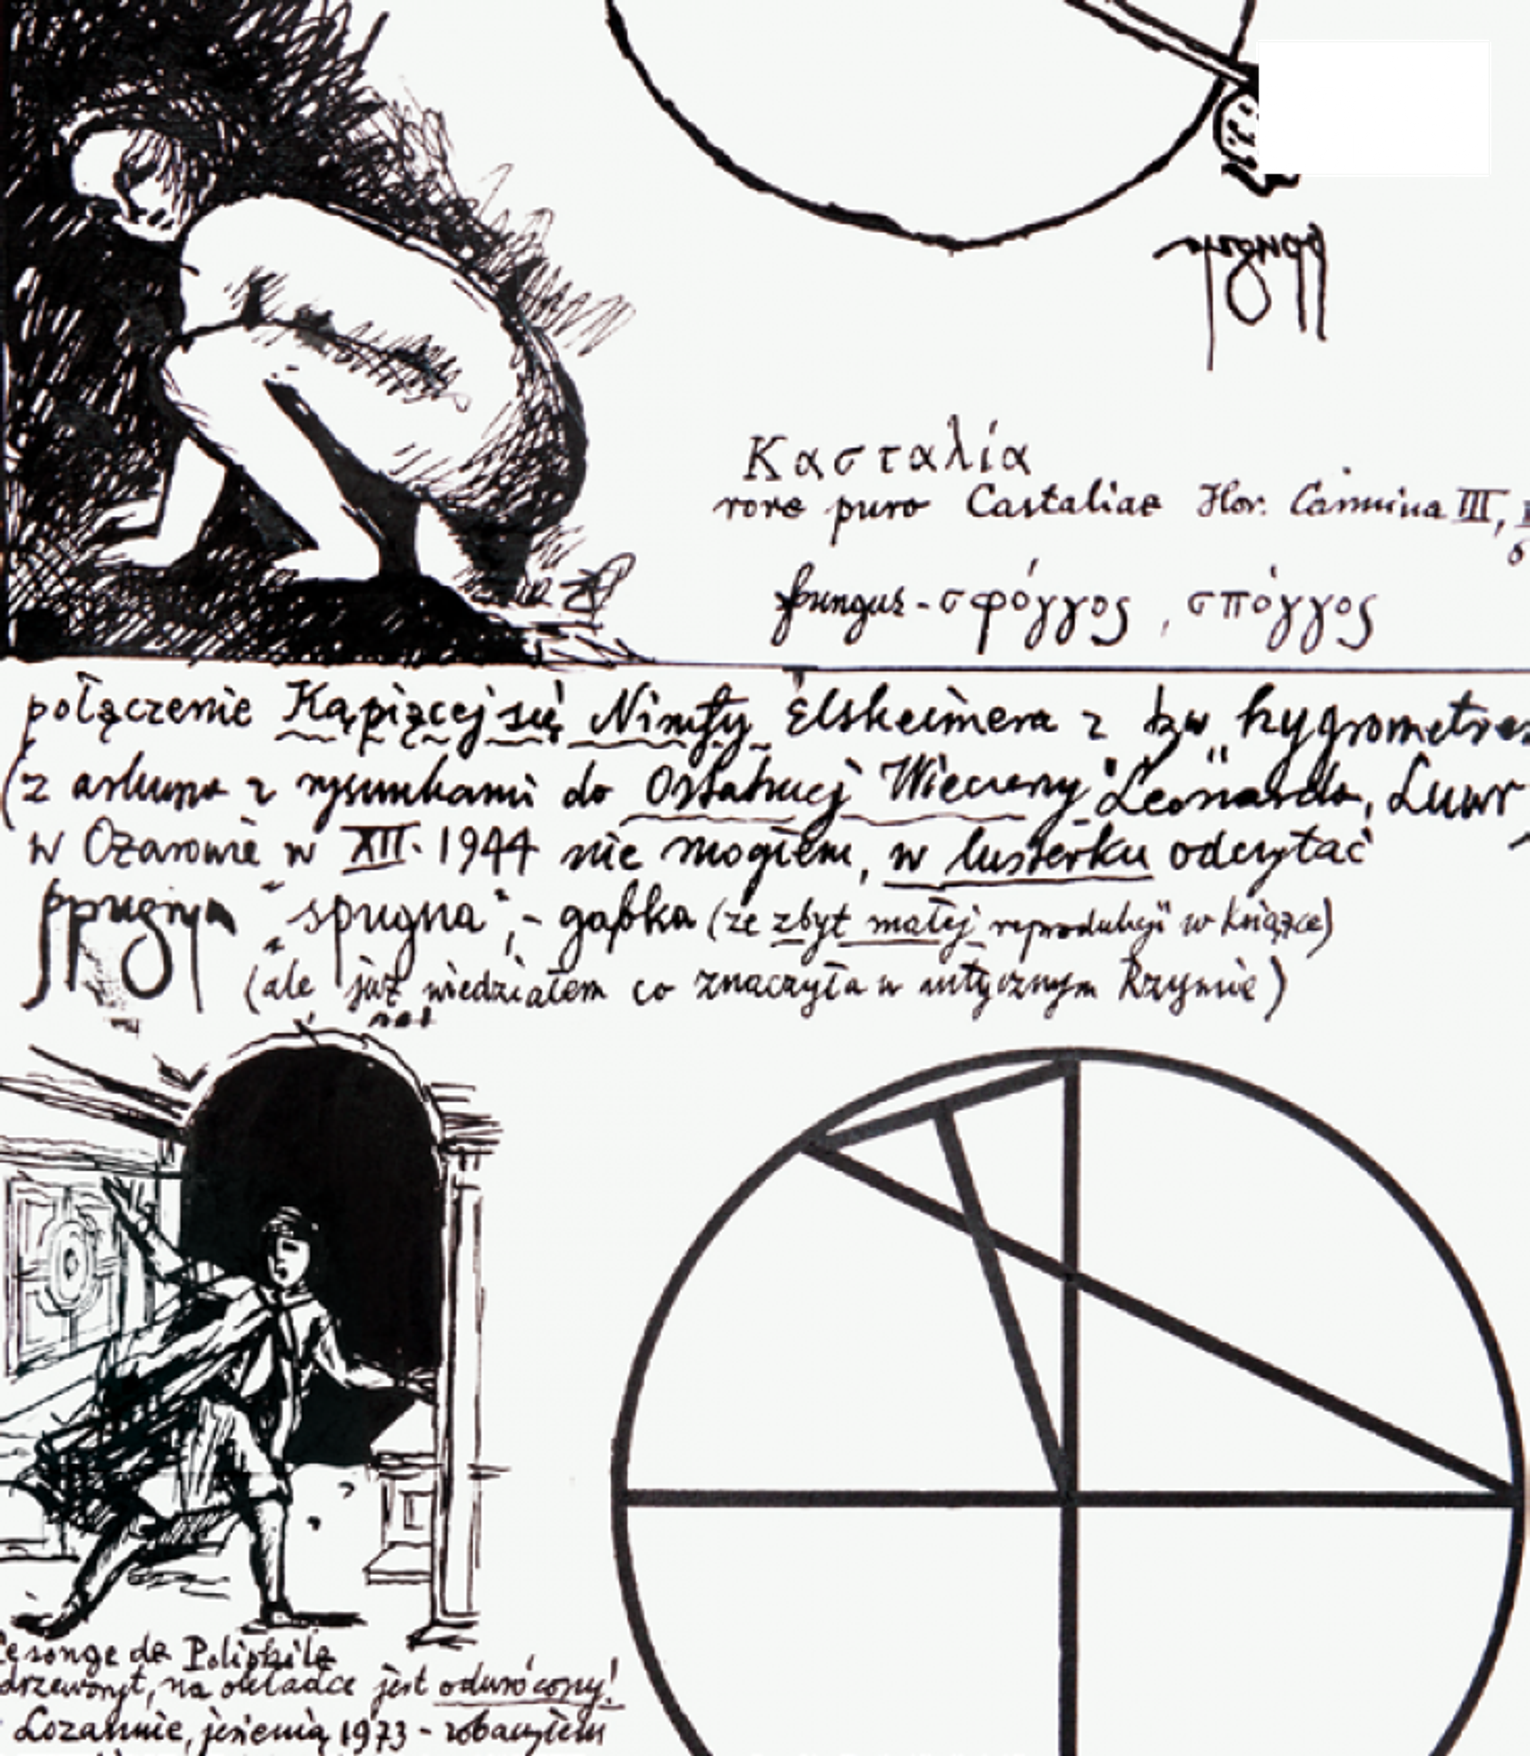 Κασταλία
rore puro Castaliae Hor. Carmina III,
fungus - σφόγγος, σπόγγος
połączenie Kąpiącej się Nimfy Elsheimera z tzw "hygrometrem"
(z arkusza z rysunkami do Ostatniej Wieczerzy Leonarda, Luwr
w Ożarowie w XII. 1944 nie mogłem, w lusterku odczytać
"spugna", - gąbka (ze zbyt małej reprodukcji w książce)
(ale już wiedziałem co znaczyła w antycznym Rzymie)
Le songe de Poliphile
drzeworyt, na okładce jest odwrócony!
Lozannie, jesienią 1973 - zobaczyłem